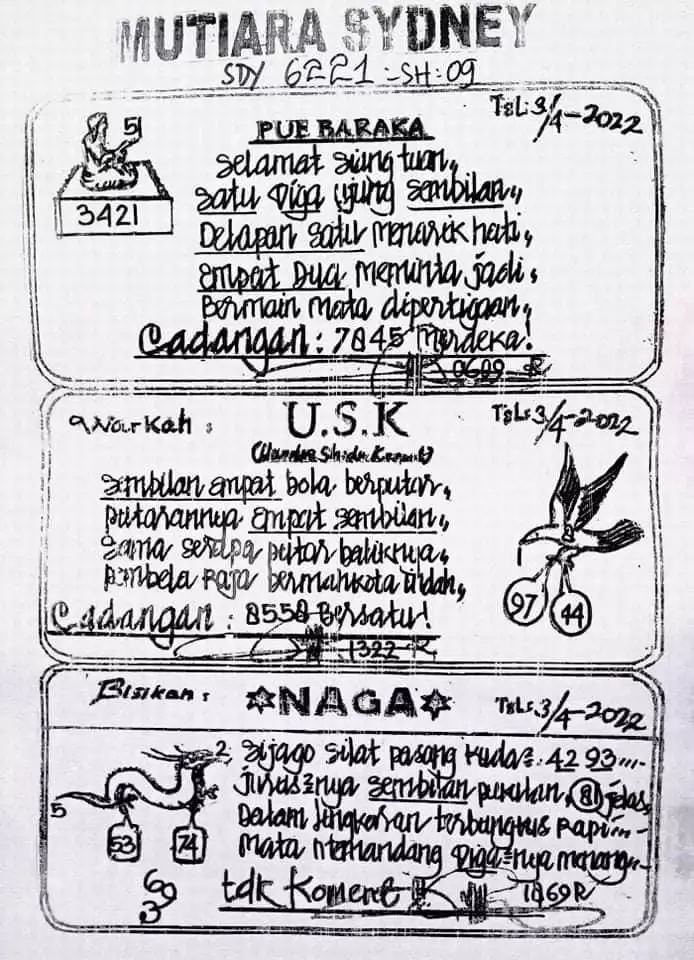 MUTIARA SYDNEY
SDY 6221 = SH: 09
TGL: 3/4-2022
5
3421
PUE BARAKA
Selamat siang tuan,,
satu tiga ujung sembilan,,
Delapan satu menarik hati,
empat Dua meminta jadi,
Bermain mata dipertigaan,
Cadangan: 7845 Merdeka!
0609 R
Warkah:
U.S.K
TGL: 3/4-2022
sembilan empat bola berputar,
putarannya empat sembilan,
sama serupa putar baliknya,
pembela Raja bermahkota indah,
97 44
Cadangan: 8558 Bersatu!
1322 R
Bisikan:
NAGA
TGL: 3/4-2022
2
5
53 74
693
sijago silat pasang kuda2: 42 93
jurus2nya sembilan pukulan, 81 jelas
Dalam lingkaran terbungkus Rapi
Mata memandang tiga2nya menang
tdk Koment
1869 R